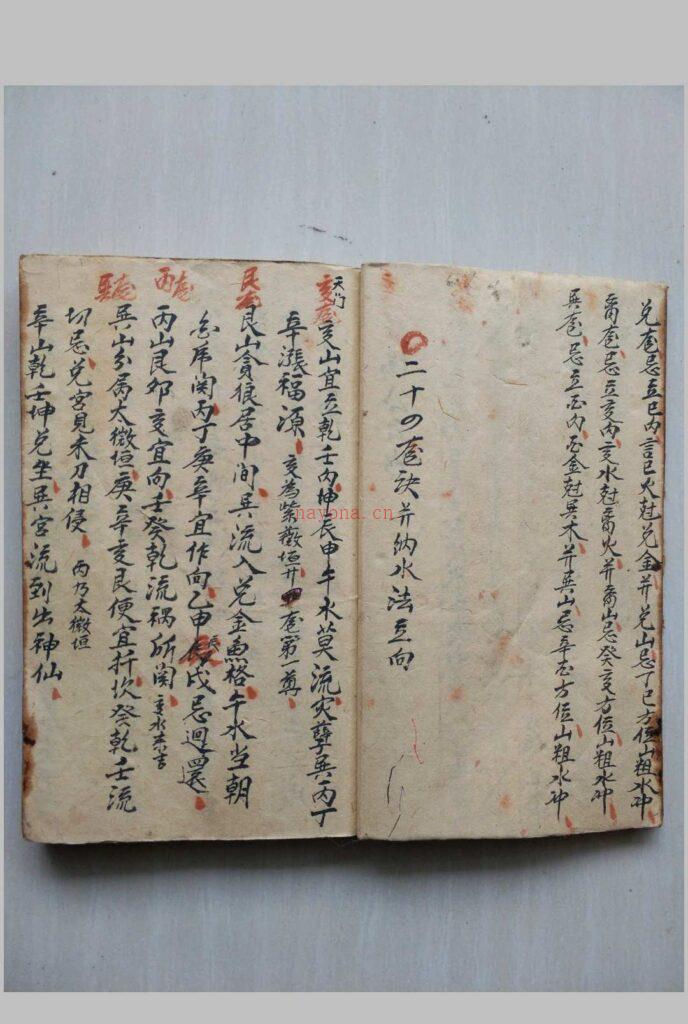 兑龍忌立巳丙言巳火尅兑金并兑山忌丁巳方位山粗水冲
离龍忌立亥丙亥水尅离火并离山忌癸亥方位山粗水冲
巽龍忌立酉丙酉金尅巽木并巽山忌辛方位山粗水冲
二十四龍訣并纳水法立向
天门
亥龍
亥山宜立乾壬丙坤辰申午水莫流灾孽巽丙丁
辛漲福源 亥為紫薇垣廿四龍第一尊
艮龍
艮山貪狼居中間巽流入兑金馬格午水当朝
関丙丁庚辛宜作向乙申辰戌忌迴還
丙龍
丙山艮卯亥宜向壬癸乾流禍所関 亥水亦吉
巽龍
巽山分属太微垣庚辛亥艮便宜扦坎癸乾壬流
切忌兑宮見未刀相侵 丙乃太微垣
辛山乾壬坤兑坐巽宮流到出神仙
nayona.cn